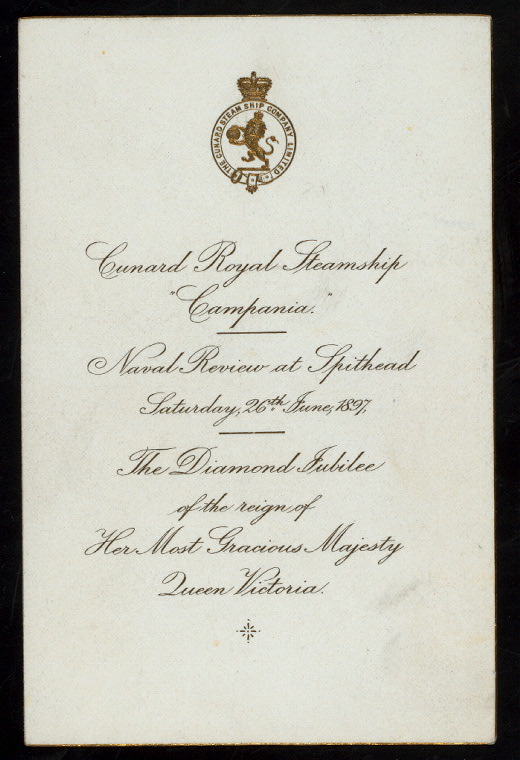 THE CUNARD STEAM SHIP COMPANY LIMITED
Cunard Royal Steamship
"Campania."
Naval Review at Spithead
Saturday, 26th June, 1897,
The Diamond Jubilee
of the reign of
Her Most Gracious Majesty
Queen Victoria.